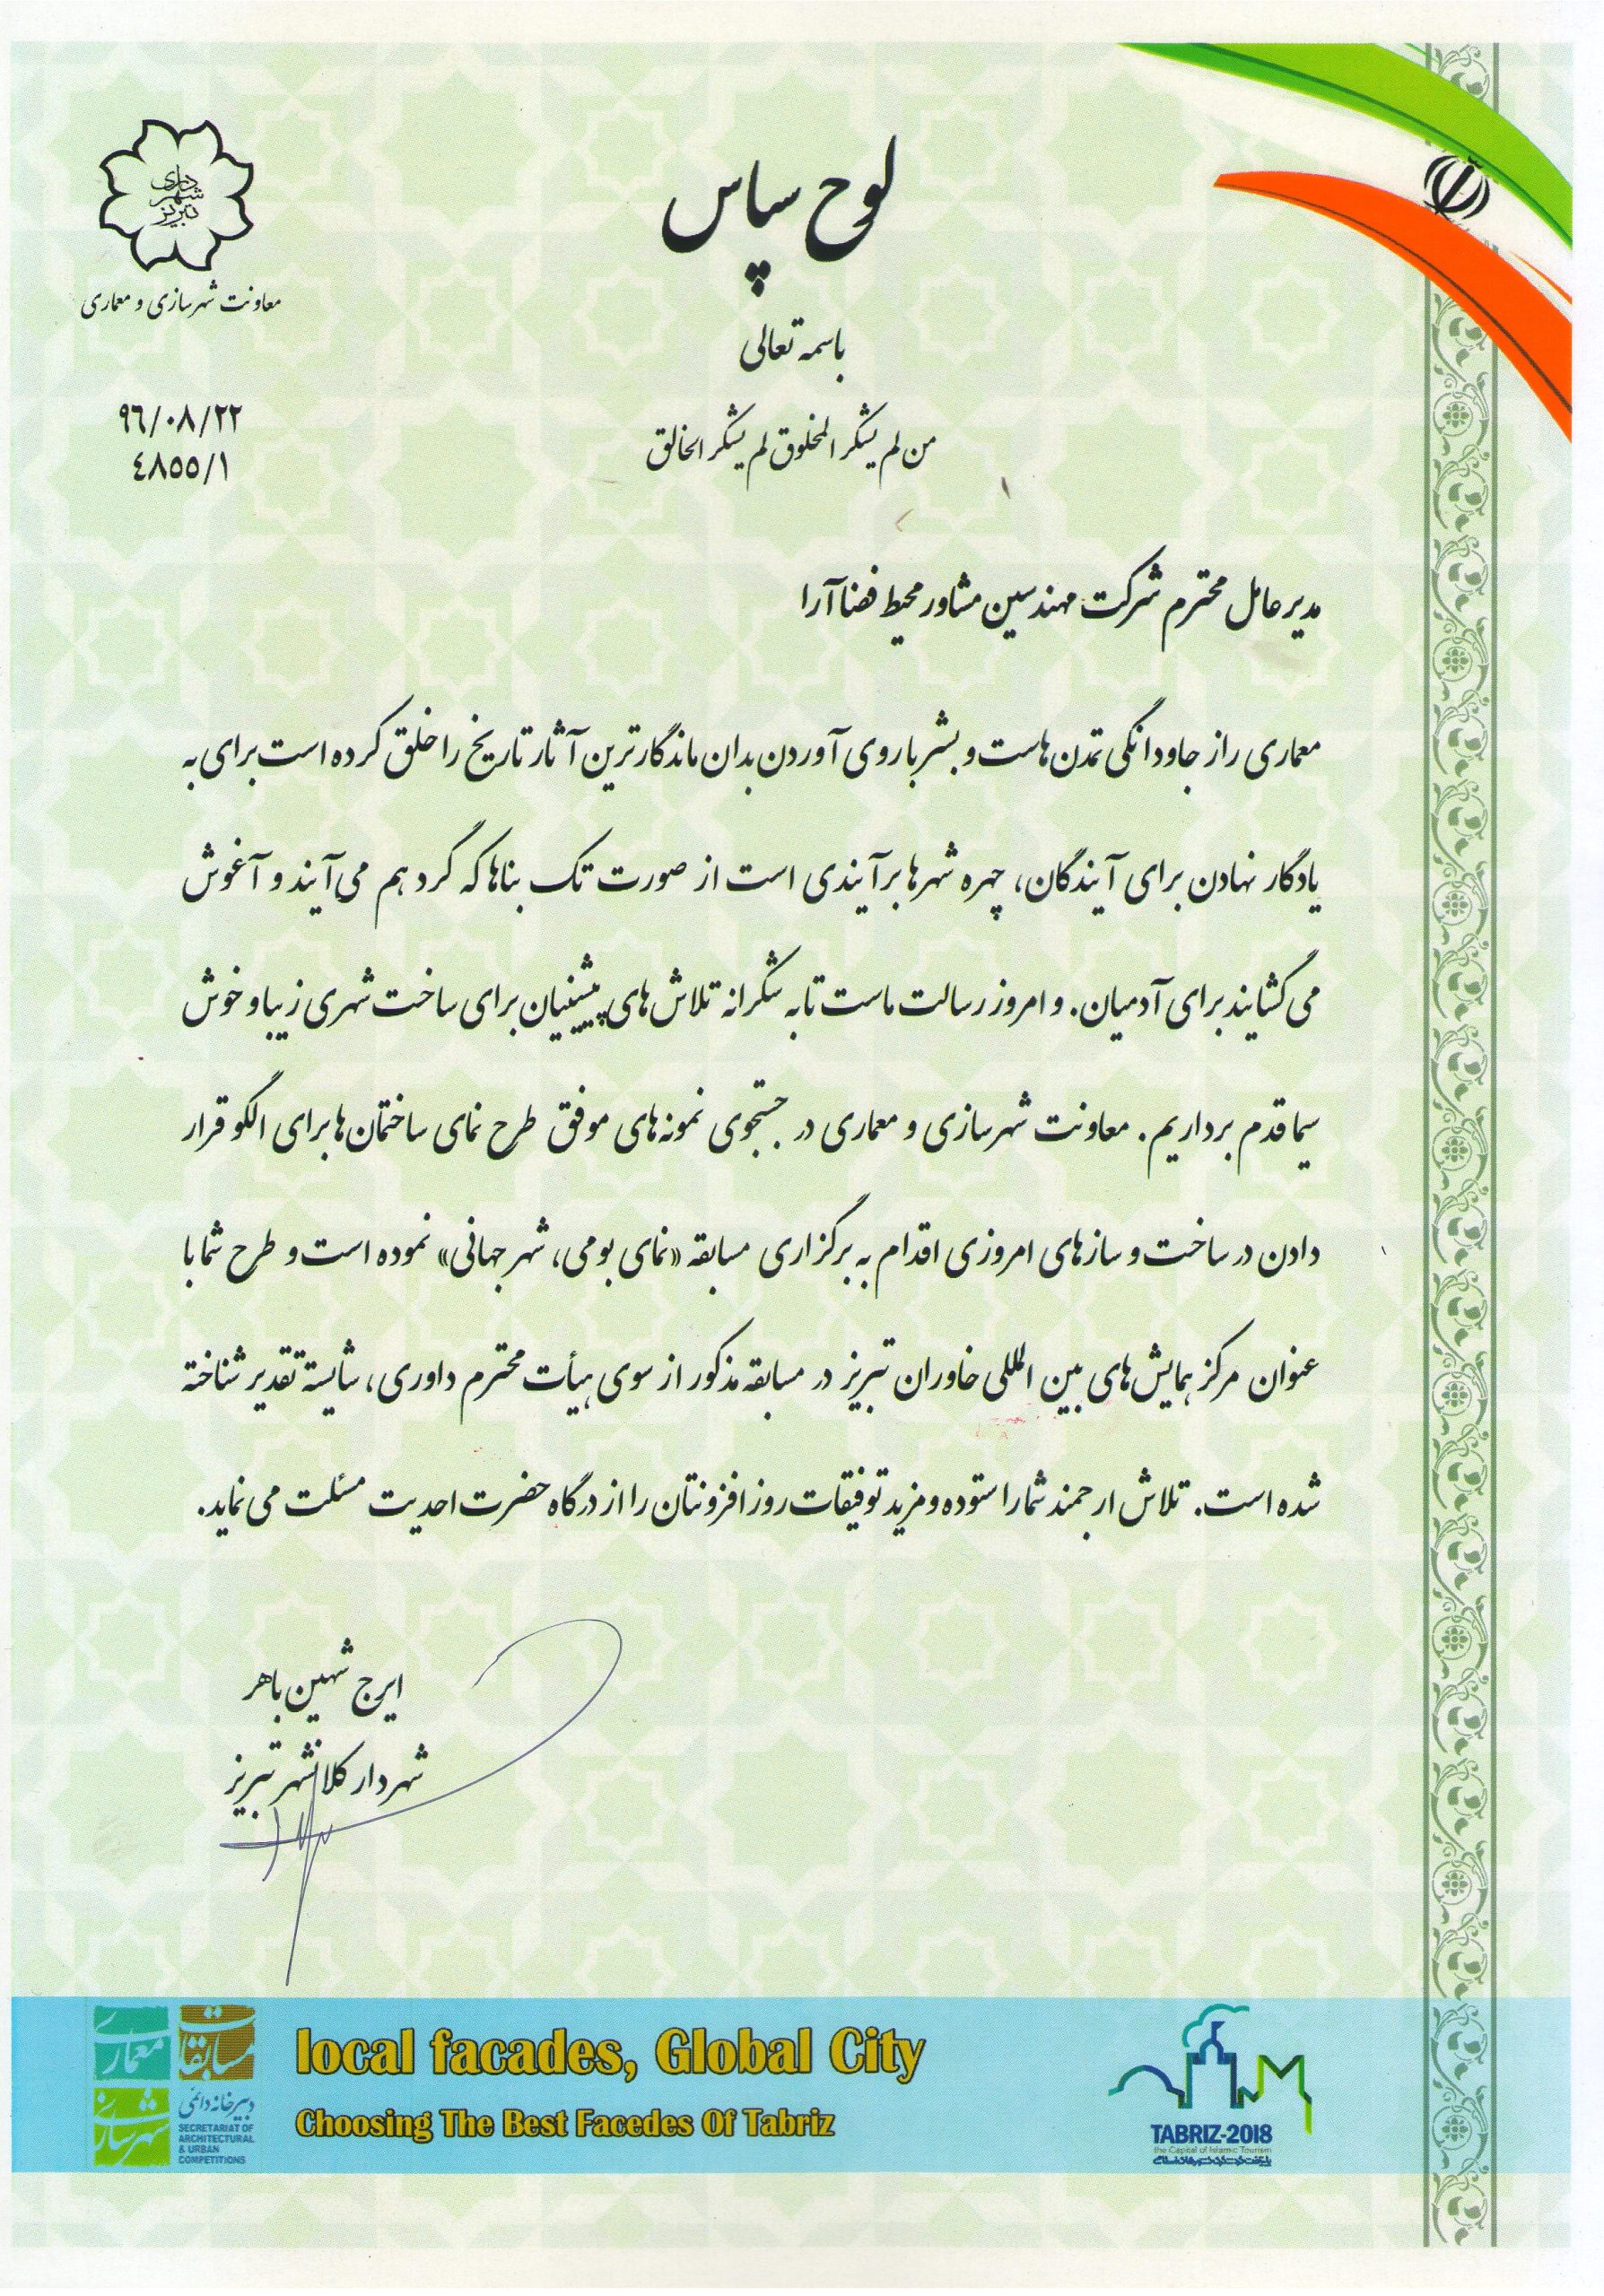 لوح سپاس
شهرداری
تبریز
معاونت شهرسازی و معماری
باسمه تعالی
۹۶/۰۸/۲۲
٤۸۵۵/۱
من لم یشکر المخلوق لم یشکر الخالق
مدیر عامل محترم شرکت مهندسین مشاور محیط فضا آرا
معماری راز جاودانگی تمدن هاست و بشر با روی آوردن بدان ماندگارترین آثار تاریخ را خلق کرده است برای به
یادگار نهادن برای آیندگان، چهره شهرها برآیندی است از صورت تک بناها که گرد هم می‌آیند و آغوش
می گشایند برای آدمیان. و امروز رسالت ماست تا به شکرانه تلاش های پیشینیان برای ساخت شهری زیبا و خوش
سیما قدم برداریم. معاونت شهرسازی و معماری در جستجوی نمونه های موفق طرح نمای ساختمان ها برای الگو قرار
دادن در ساخت و سازهای امروزی اقدام به برگزاری مسابقه «نمای بومی، شهر جهانی» نموده است و طرح شما با
عنوان مرکز همایش های بین المللی خاوران تبریز در مسابقه مذکور از سوی هیأت محترم داوری، شایسته تقدیر شناخته
شده است. تلاش ارجمند شما را ستوده و مزید توفیقات روز افزونتان را از درگاه حضرت احدیت مسئلت می نماید.
ایرج شهین باهر
شهردار کلانشهر تبریز
local facades, Global City
Choosing The Best Facedes Of Tabriz
مسابقات
معماری
شهرسازی
دبیرخانه دائمی
SECRETARIAT OF
ARCHITECTURAL
& URBAN
COMPETITIONS
TABRIZ-2018
the Capital of Islamic Tourism